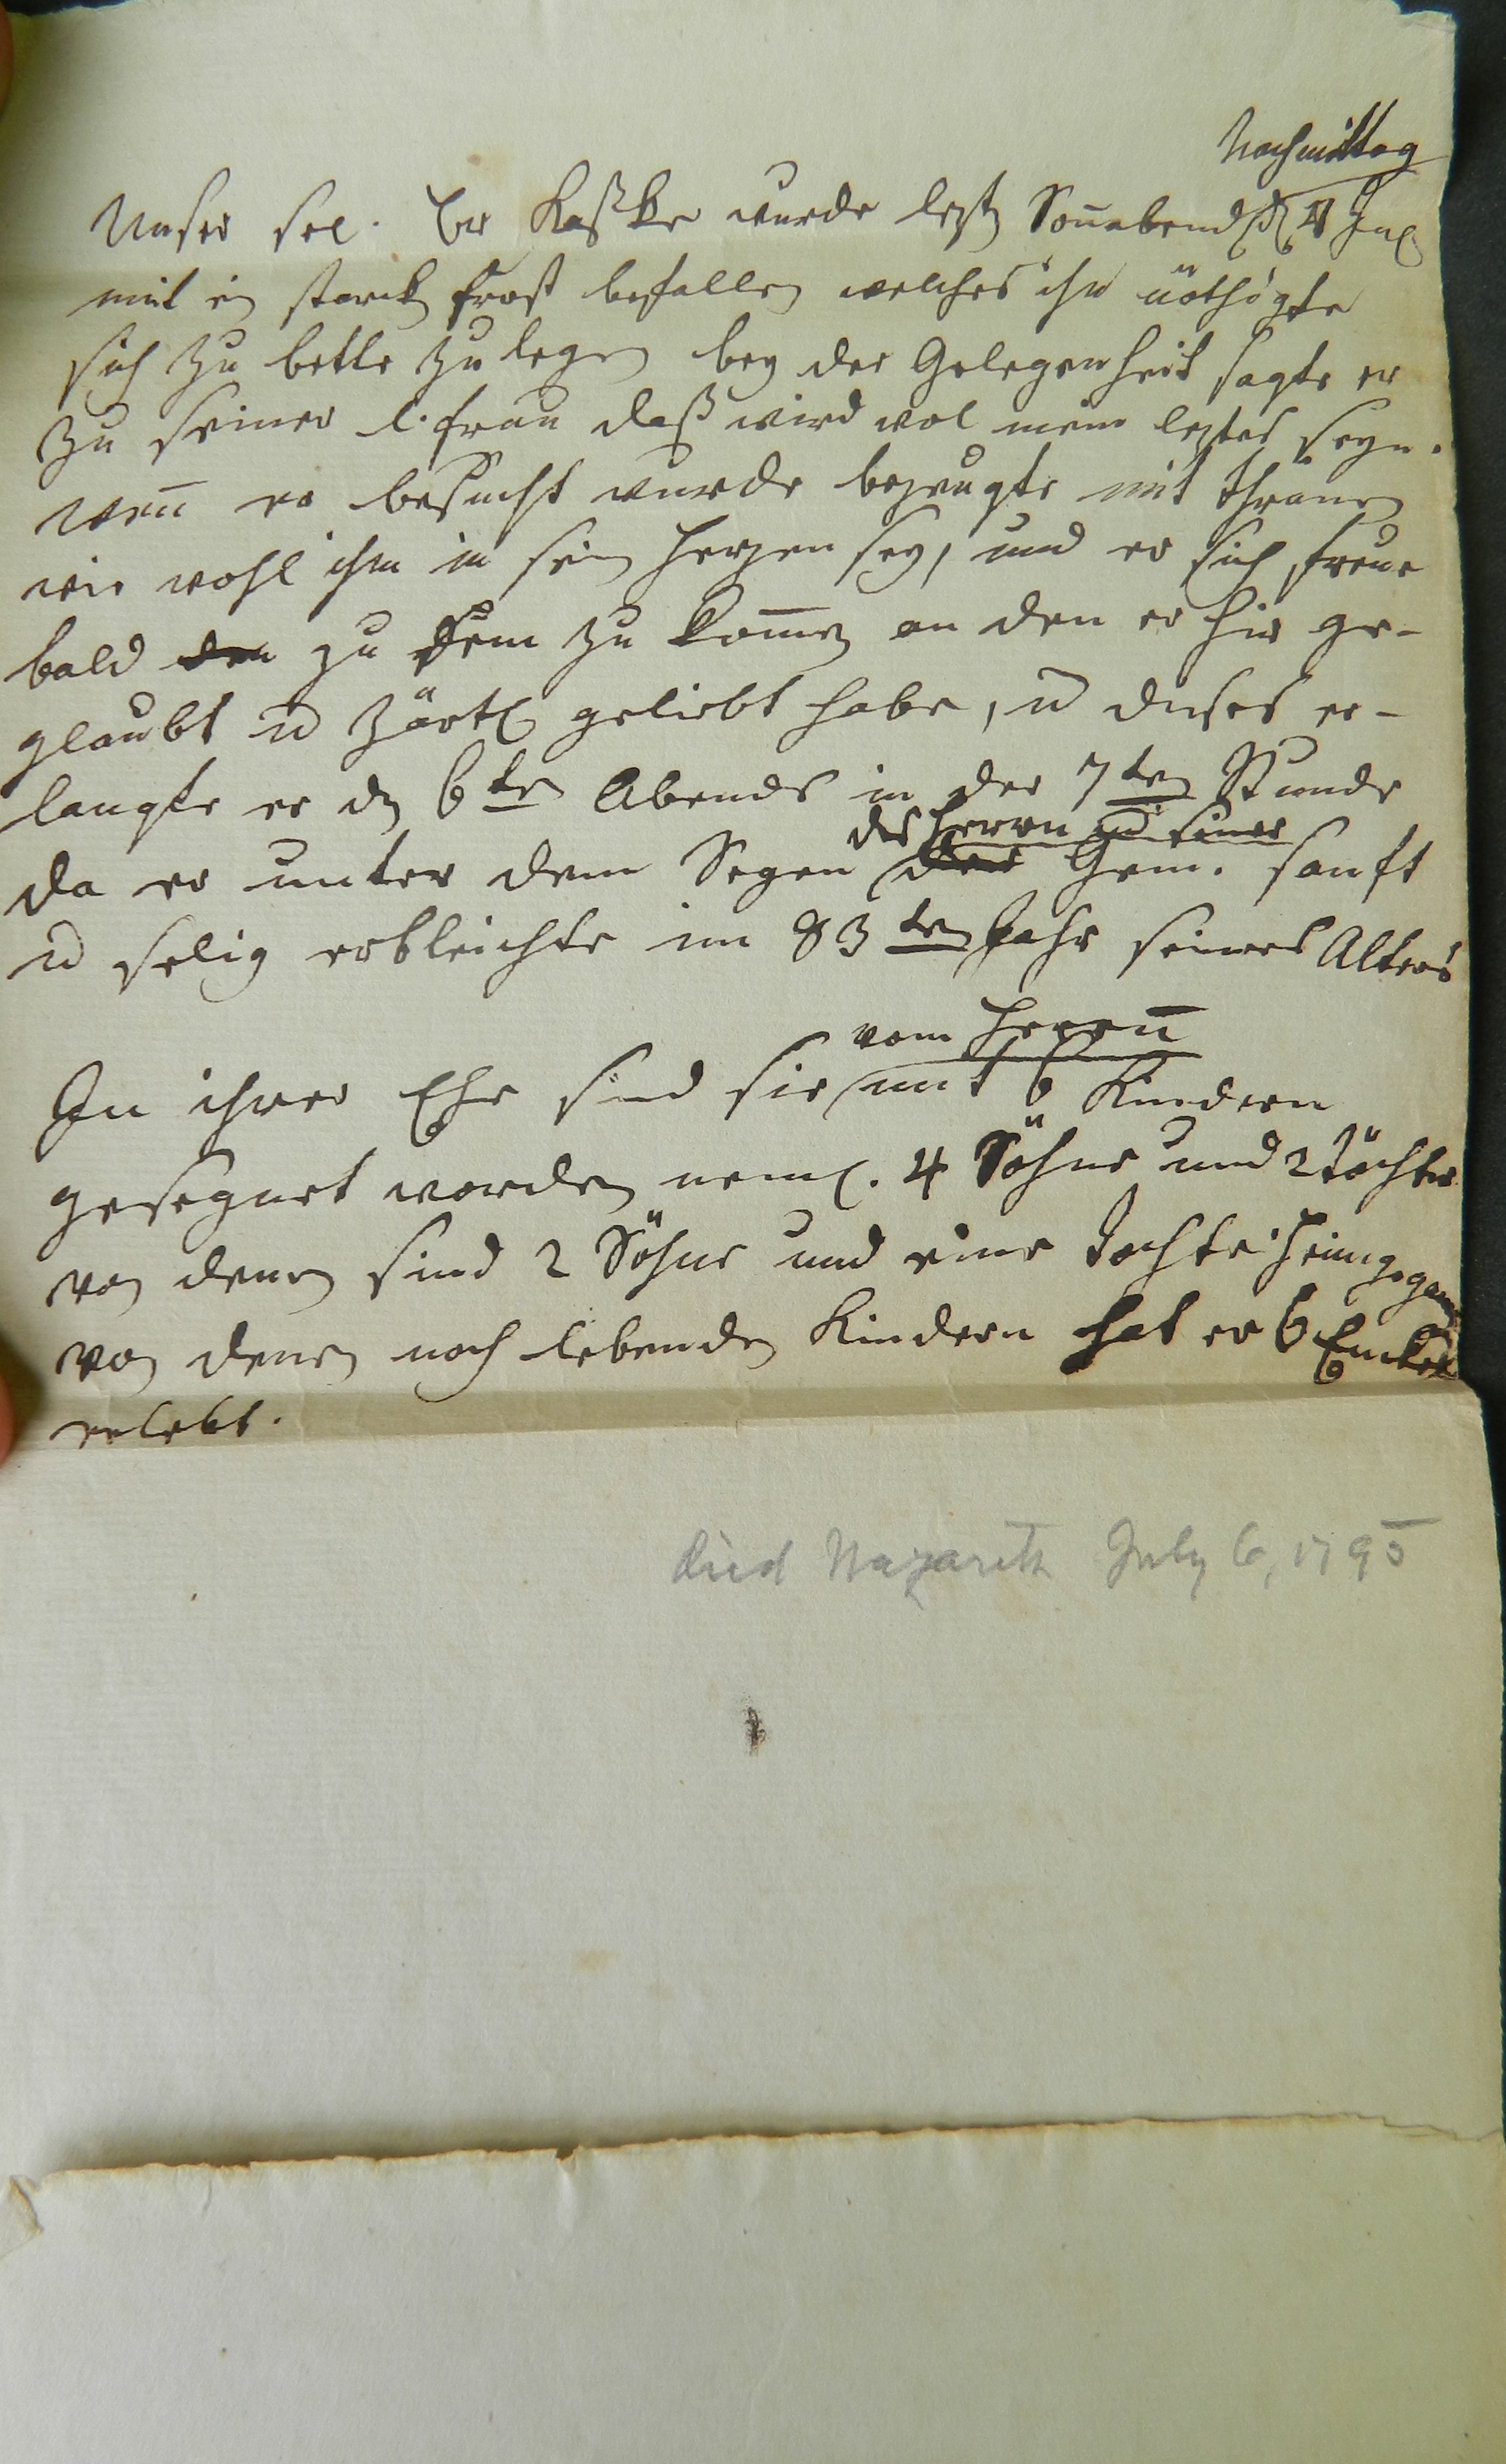 Nachmittag
Unser sel. Br Kaßke wurde lezt Son̄abend d 4 Jul
mit ein starck frost befallen welches ihn nöthigte
sich zu bette zu legen bey der Gelegenheit sagte er
zu seiner l. frau daß wird wol mein leztes seyn.
wen̄ er besucht wurde bezeugte mit thränen
wie wohl ihm in sein herzen sey, und er sich freue
bald den zu dem zu kom̄en an den er hir ge-
glaubt u zärtl geliebt habe, u dieses er-
langte er den 6ten Abends in der 7ten Stunde
des Herrn u seiner
da er unter dem Segen der Gem. sanft
u selig erbleichte im 83ten Jahr seines Alters
vom Herrn̄
In ihrer Ehe sind sie mit 6 Kindern
gesegnet worden neml. 4 Söhne und 2 Töchter
von denen sind 2 Söhne und eine Tochter heimgegangen
von denen noch lebenden Kindern hat er 6 Enckel
erlebt.
died Nazareth July 6, 1795